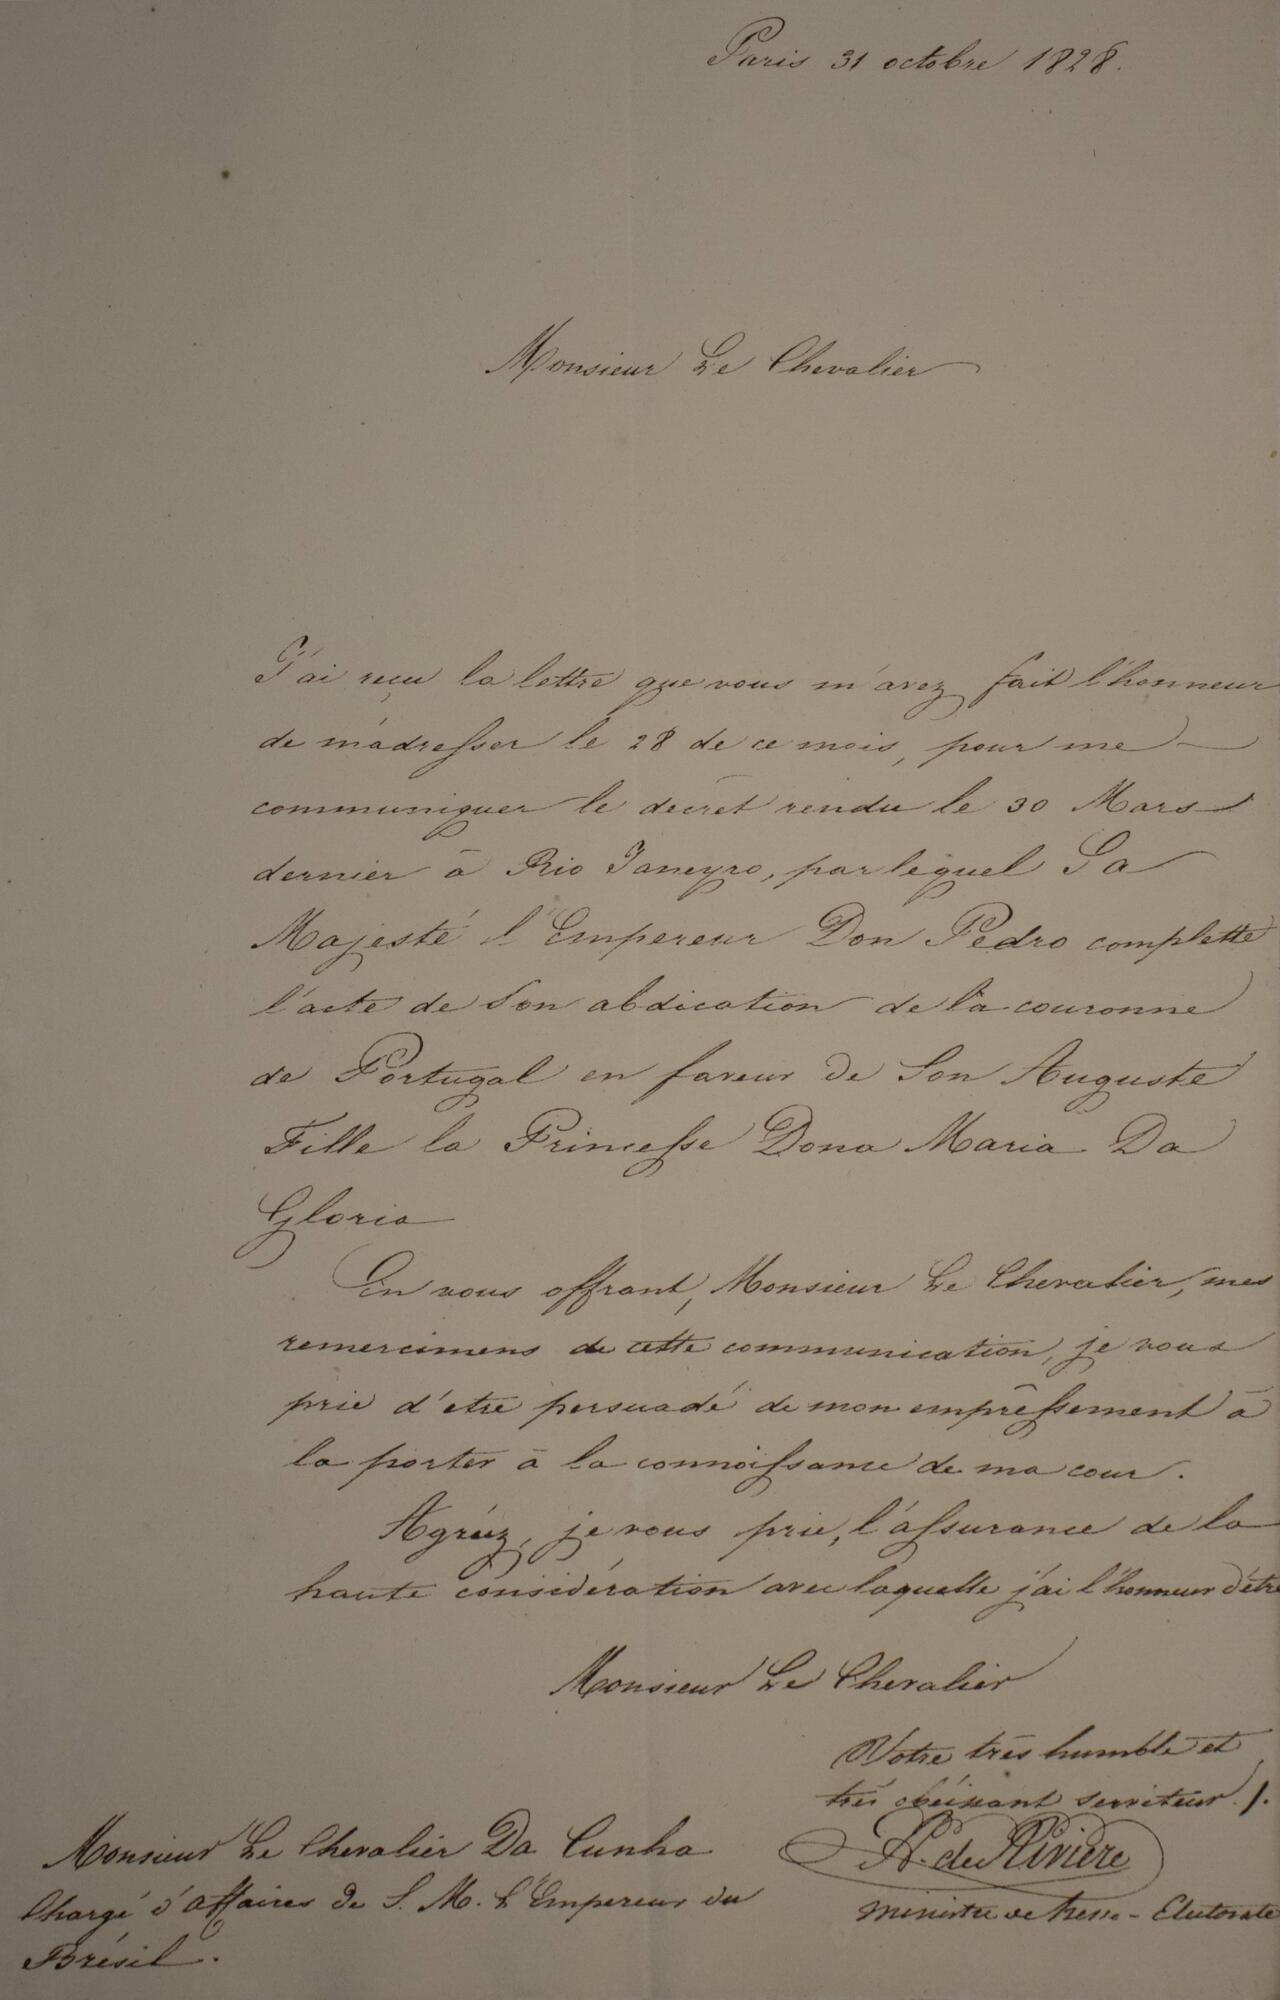 Paris 31 octobre 1828.
Monsieur Le Chevalier
J'ai reçu la lettre que vous m'avez fait l'honneur
de m'adresser le 28 de ce mois, pour me
communiquer le decret rendu le 30 Mars
dernier à Rio Janeyro, par lequel Sa
Majesté l'Empereur Don Pedro complette
l'acte de Son abdication de la couronne
de Portugal en faveur de Son Auguste
Fille la Princesse Dona Maria Da
Gloria
En vous offrant, Monsieur Le Chevalier, mes
remercimens de cette communication, je vous
prie d'etre persuadé de mon empressement à
la porter à la connoissance de ma cour.
Agréez, je vous prie, l'assurance de la
haute considération avec laquelle j'ai l'honneur d'être
Monsieur Le Chevalier
Votre très humble et
très obéissant serviteur ./.
A. de Rivière
Ministre de Hesse-Electorale
Monsieur Le Chevalier Da Cunha
Chargé d'affaires de S. M. L'Empereur du
Brésil.